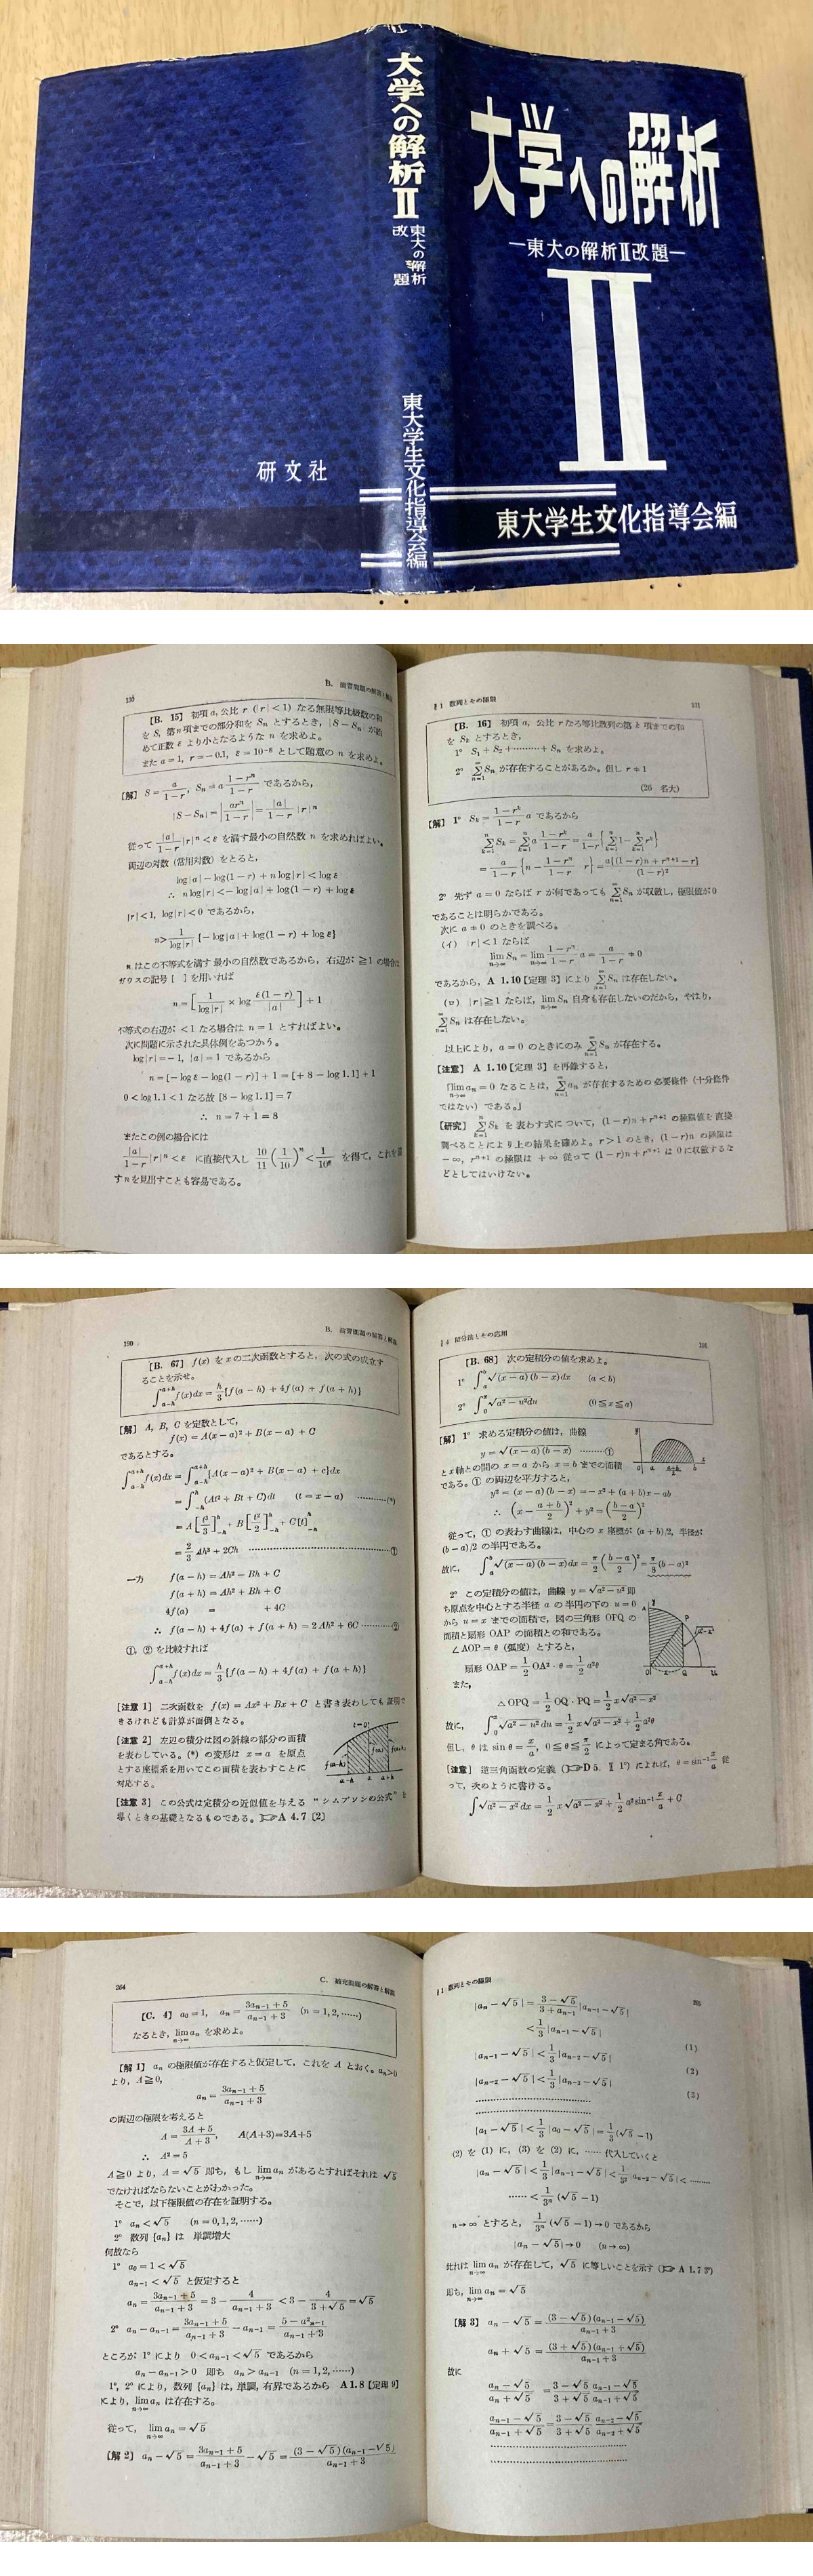 大学への解析Ⅱ
東大の解析
改題
東大学生文化指導会編
大学への解析
—東大の解析Ⅱ改題—
Ⅱ
東大学生文化指導会編
研文社
B. 演習問題の解答と解説
[B. 15] 初項 a, 公比 r (|r|<1) なる無限等比級数の和
を S, 第 n 項までの部分和を Sn とするとき, |S−Sn| が始
めて正数 ε より小となるような n を求めよ。
また a=1, r=−0.1, ε=10⁻⁸ として題意の n を求めよ。
[解] S=a/(1−r), Sn=a(1−rⁿ)/(1−r) であるから,
|S−Sn|=|arⁿ/(1−r)|=|a|/(1−r)|r|ⁿ
従って |a|/(1−r)|r|ⁿ<ε を満す最小の自然数 n を求めればよい。
両辺の対数 (常用対数) をとると,
log|a|−log(1−r)+n log|r|<log ε
∴ n log|r|<−log|a|+log(1−r)+log ε
|r|<1, log|r|<0 であるから,
n>1/log|r| {−log|a|+log(1−r)+log ε}
n はこの不等式を満す最小の自然数であるから, 右辺が ≧1 の場合は
ガウスの記号 [ ] を用いれば
n=[1/log|r| × log ε(1−r)/|a|]+1
不等式の右辺が <1 なる場合は n=1 とすればよい。
次に問題に示された具体例をあつかう。
log|r|=−1, |a|=1 であるから
n=[−log ε−log(1−r)]+1=[+8−log1.1]+1
0<log1.1<1 なる故 [8−log1.1]=7
∴ n=7+1=8
またこの例の場合には
|a|/(1−r)|r|ⁿ<ε に直接代入し 10/11(1/10)ⁿ<1/10⁸ を得て, これを満
す n を見出すことも容易である。
§1 数列とその極限
[B. 16] 初項 a, 公比 r なる等比数列の第 k 項までの和
を Sk とするとき,
1° S1+S2+………+Sn を求めよ。
2° ∑Sn が存在することがあるか。但し r≠1
(26 名大)
[解] 1° Sk=(1−rᵏ)/(1−r) a であるから
∑Sk=∑a(1−rᵏ)/(1−r)=a/(1−r){∑1−∑rᵏ}
=a/(1−r){n−(1−rⁿ)/(1−r) r}=a{(1−r)n+rⁿ⁺¹−r}/(1−r)²
2° 先ず a=0 ならば r が何であっても ∑Sn が収斂し, 極限値が 0
であることは明らかである。
次に a≠0 のときを調べる。
(イ) |r|<1 ならば
lim Sn=lim (1−rⁿ)/(1−r) a=a/(1−r)≠0
であるから, A 1.10 [定理 3] により ∑Sn は存在しない。
(ロ) |r|≧1 ならば, lim Sn 自身も存在しないのだから, やはり,
∑Sn は存在しない。
以上により, a=0 のときにのみ ∑Sn が存在する。
[注意] A 1.10 [定理 3] を再録すると,
「lim an=0 なることは, ∑an が存在するための必要条件 (十分条件
ではない) である。」
[研究] ∑Sk を表わす式について, (1−r)n+rⁿ⁺¹ の極限値を直接
調べることにより上の結果を確めよ。r>1 のとき, (1−r)n の極限は
−∞, rⁿ⁺¹ の極限は +∞ 従って (1−r)n+rⁿ⁺¹ は 0 に収斂するな
どとしてはいけない。
190
B. 演習問題の解答と解説
[B. 67] f(x) を x の二次函数とすると, 次の式の成立す
ることを示せ。
∫f(x)dx=h/3{f(a−h)+4f(a)+f(a+h)}
[解] A, B, C を定数として,
f(x)=A(x−a)²+B(x−a)+C
であるとする。
∫f(x)dx=∫{A(x−a)²+B(x−a)+c}dx
=∫(At²+Bt+C)dt (t=x−a) …………(*)
=A[t³/3]+B[t²/2]+C[t]
=2/3 Ah³+2Ch ………………①
一方 f(a−h)=Ah²−Bh+C
f(a+h)=Ah²+Bh+C
4f(a) = +4C
∴ f(a−h)+4f(a)+f(a+h)=2Ah²+6C …………②
①, ② を比較すれば
∫f(x)dx=h/3{f(a−h)+4f(a)+f(a+h)}
[注意 1] 二次函数を f(x)=Ax²+Bx+C と書き表わしても証明で
きるけれども計算が面倒となる。
[注意 2] 左辺の積分は図の斜線の部分の面積
を表わしている。(*) の変形は x=a を原点
とする座標系を用いてこの面積を表わすことに
対応する。
[注意 3] この公式は定積分の近似値を与える “シムプソンの公式” を
導くときの基礎となるものである。☞A 4.7 [2]
§4 積分法とその応用
191
[B. 68] 次の定積分の値を求めよ。
1° ∫√(x−a)(b−x)dx (a<b)
2° ∫√a²−u²du (0≦x≦a)
[解] 1° 求める定積分の値は, 曲線
y=√(x−a)(b−x) ………①
と x 軸との間の x=a から x=b までの面積
である。① の両辺を平方すると,
y²=(x−a)(b−x)=−x²+(a+b)x−ab
∴ (x−(a+b)/2)²+y²=((b−a)/2)²
従って, ① の表わす曲線は, 中心の x 座標が (a+b)/2, 半径が
(b−a)/2 の半円である。
故に, ∫√(x−a)(b−x)dx=π/2((b−a)/2)²=π/8(b−a)²
2° この定積分の値は, 曲線 y=√a²−u² 即
ち原点を中心とする半径 a の半円の下の u=0
から u=x までの面積で, 図の三角形 OPQ の
面積と扇形 OAP の面積との和である。
∠AOP=θ (弧度) とすると,
扇形 OAP=1/2 OA²·θ=1/2 a²θ
また,
△OPQ=1/2 OQ·PQ=1/2 x√a²−x²
故に, ∫√a²−u²du=1/2 x√a²−x²+1/2 a²θ
但し, θ は sin θ=x/a, 0≦θ≦π/2 によって定まる角である。
[注意] 逆三角函数の定義 (☞D 5. Ⅱ 1°) によれば, θ=sin⁻¹x/a 従
って, 次のように書ける。
∫√a²−x²dx=1/2 x√a²−x²+1/2 a²sin⁻¹x/a+C
264
C. 補充問題の解答と解説
[C. 4] a0=1, an=(3an−1+5)/(an−1+3) (n=1,2,……)
なるとき, lim an を求めよ。
[解 1] an の極限値が存在すると仮定して, これを A とおく。an>0
より, A≧0,
an=(3an−1+5)/(an−1+3)
の両辺の極限を考えると
A=(3A+5)/(A+3), A(A+3)=3A+5
∴ A²=5
A≧0 より, A=√5 即ち, もし lim an があるとすればそれは √5
でなければならないことがわかった。
そこで, 以下極限値の存在を証明する。
1° an<√5 (n=0,1,2,……)
2° 数列 {an} は 単調増大
何故なら
1° a0=1<√5
an−1<√5 と仮定すると
an=(3an−1+5)/(an−1+3)=3−4/(an−1+3)<3−4/(3+√5)=√5
2° an−an−1=(3an−1+5)/(an−1+3)−an−1=(5−a²n−1)/(an−1+3)
ところが 1° により 0<an−1<√5 であるから
an−an−1>0 即ち an>an−1 (n=1,2,……)
1°, 2° により, 数列 {an} は, 単調, 有界であるから A1.8 [定理 9]
により, lim an は存在する。
従って, lim an=√5
[解 2] an−√5=(3an−1+5)/(an−1+3)−√5=(3−√5)(an−1−√5)/(an−1+3)
§1 数列とその極限
265
|an−√5|=(3−√5)/(3+an−1)|an−1−√5|
<1/3|an−1−√5| (1)
|an−1−√5|<1/3|an−2−√5| (2)
|an−2−√5|<1/3|an−3−√5| (3)
………………………
………………………
|a1−√5|<1/3|a0−√5|=1/3(√5−1)
(2) を (1) に, (3) を (2) に, …… 代入していくと
|an−√5|<1/3|an−1−√5|<1/3²|an−2−√5|<………
……<1/3ⁿ(√5−1)
n→∞ とすると, 1/3ⁿ(√5−1)→0 であるから
|an−√5|→0 (n→∞)
此れは lim an が存在して, √5 に等しいことを示す (☞ A 1.7 3°)
即ち, lim an=√5
[解 3] an−√5=(3−√5)(an−1−√5)/(an−1+3)
an+√5=(3+√5)(an−1+√5)/(an−1+3)
故に
(an−√5)/(an+√5)=(3−√5)/(3+√5) (an−1−√5)/(an−1+√5)
(an−1−√5)/(an−1+√5)=(3−√5)/(3+√5) (an−2−√5)/(an−2+√5)
………………………
………………………